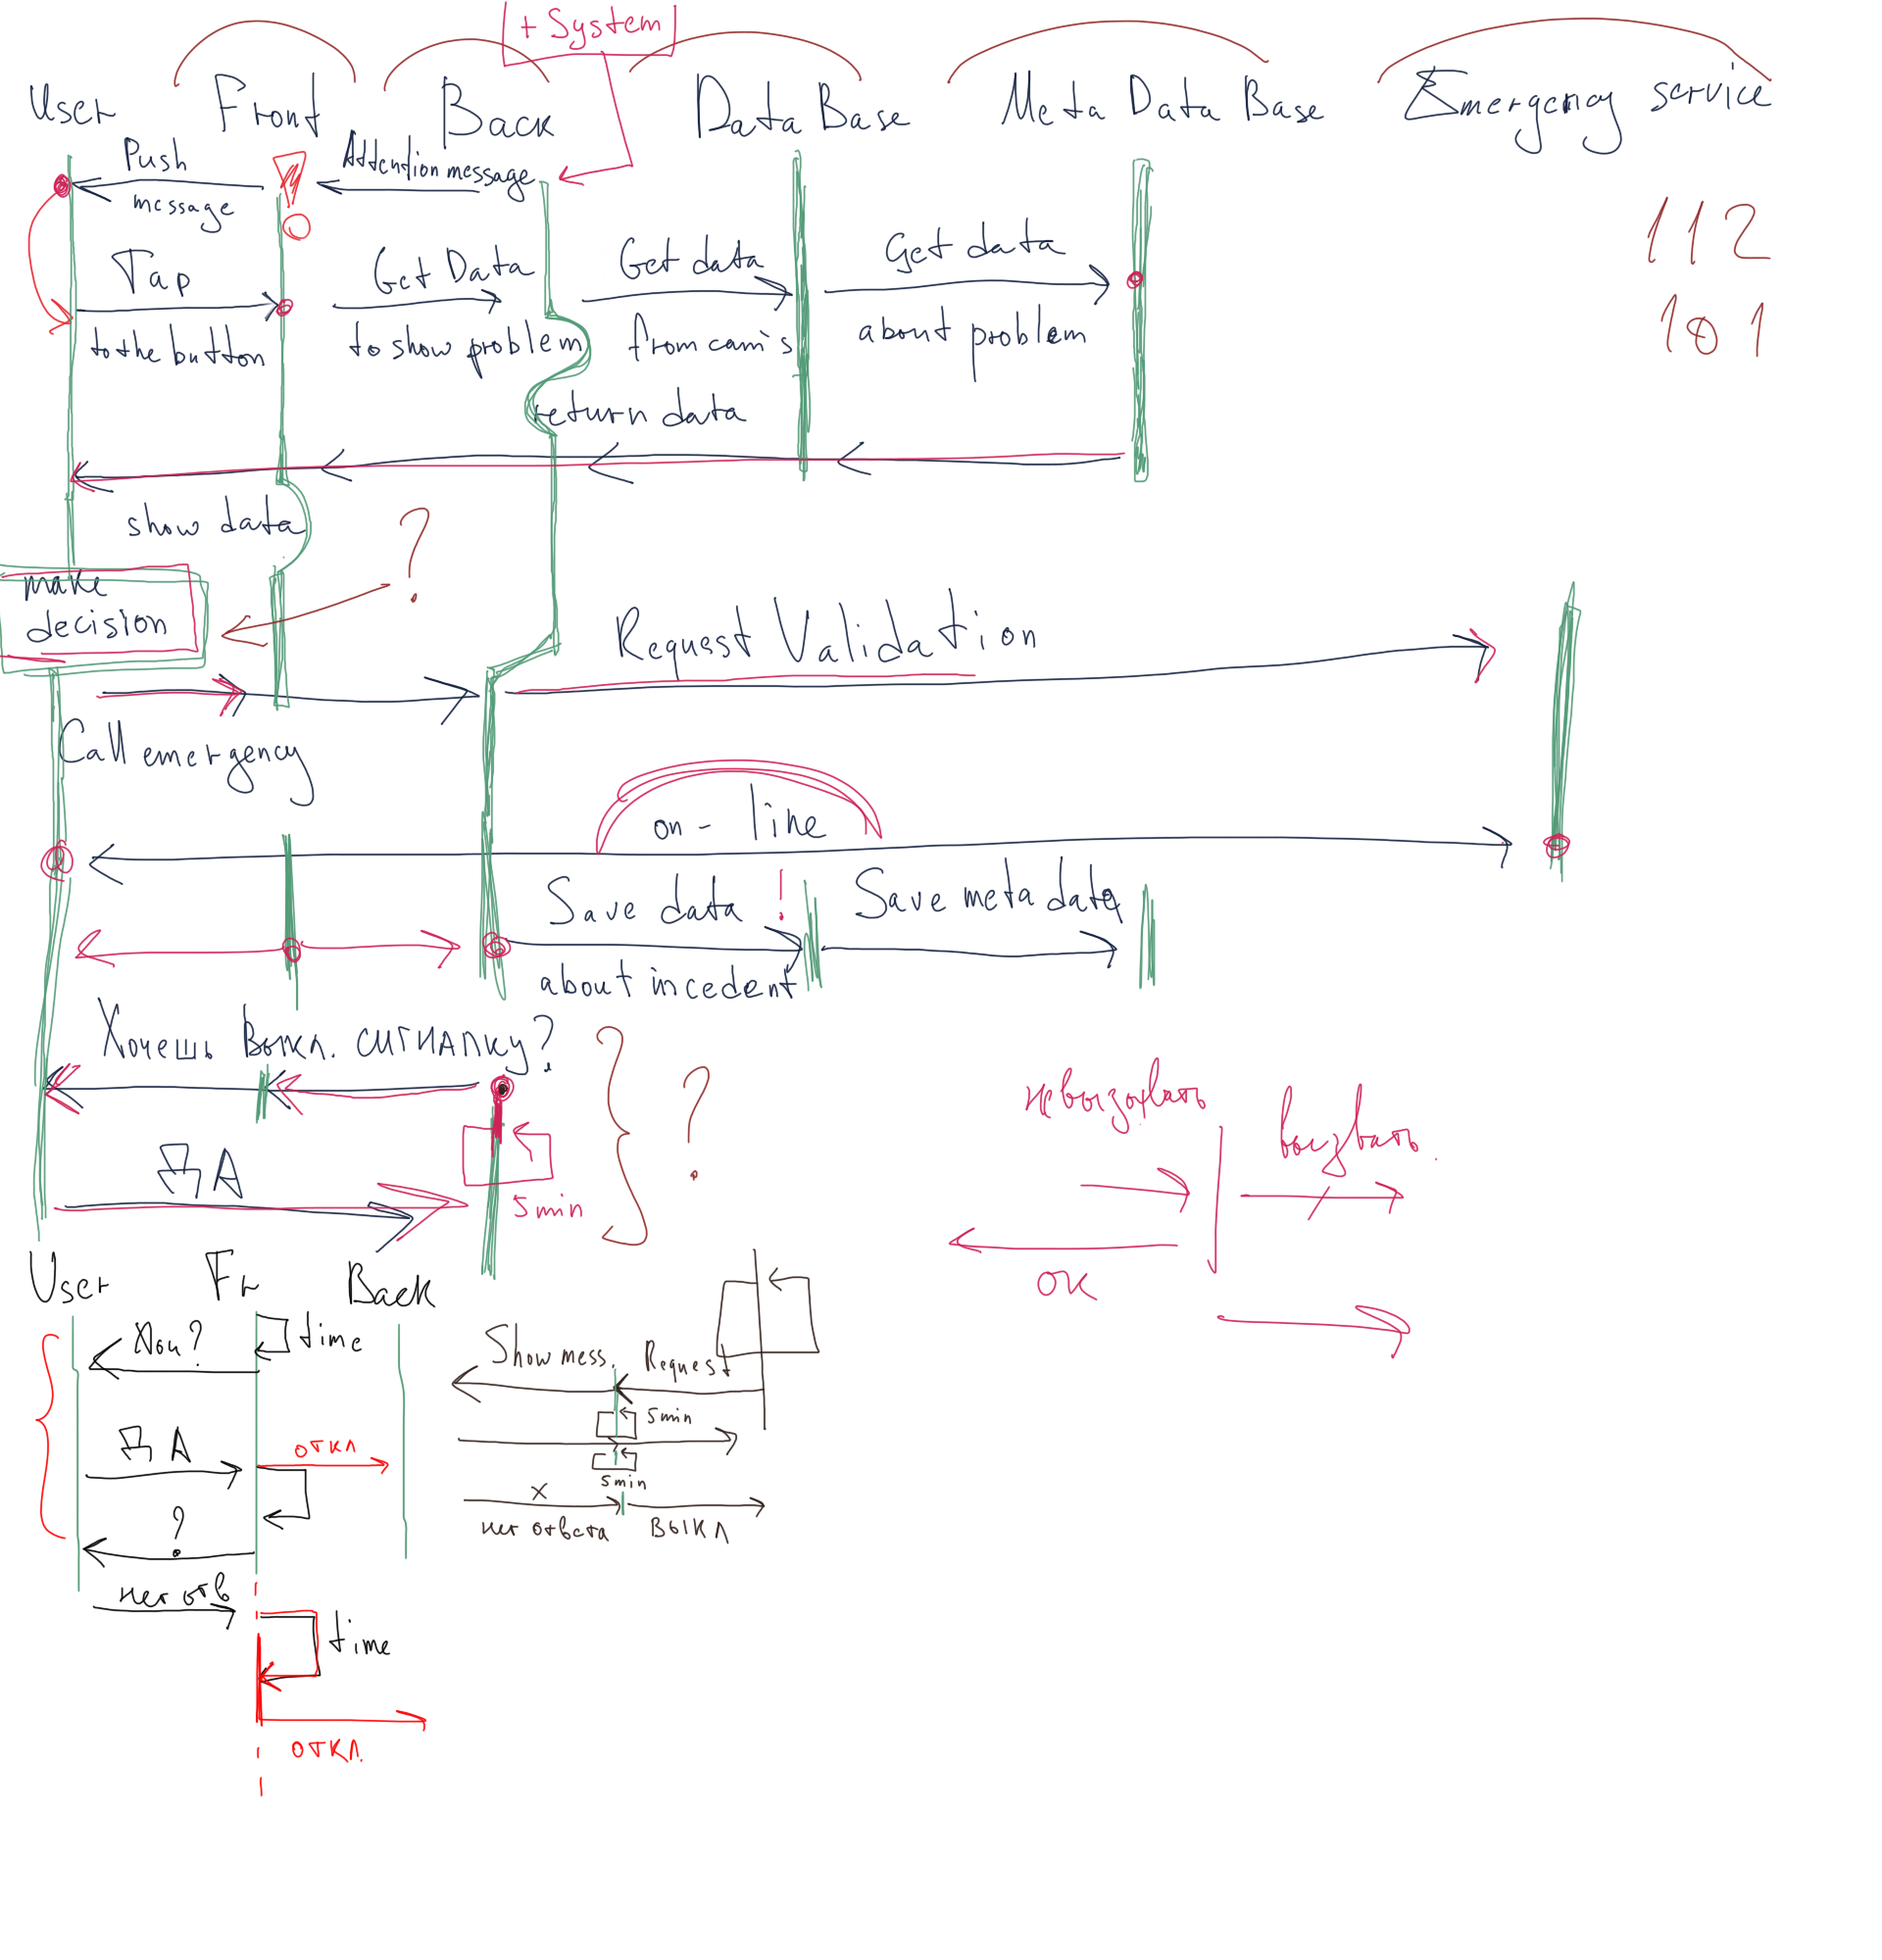 + System
User Front Back Data Base Meta Data Base Emergency service
Push
message
Attention message
112
101
Tap
to the button
Get Data
to show problem
Get data
from cam's
Get data
about problem
return data
show data
?
make
decision
Request Validation
Call emergency
on-line
Save data !
about incedent
Save meta data
Хочешь Выкл. сигналку?
?
ДА
5 min
не вызывать
вызвать.
ок
User Fr Back
Хоч? time
Show mess. Request
5 min
ДА
откл
5 min
?
x
нет ответа
ВЫКЛ
нет отв
time
откл.